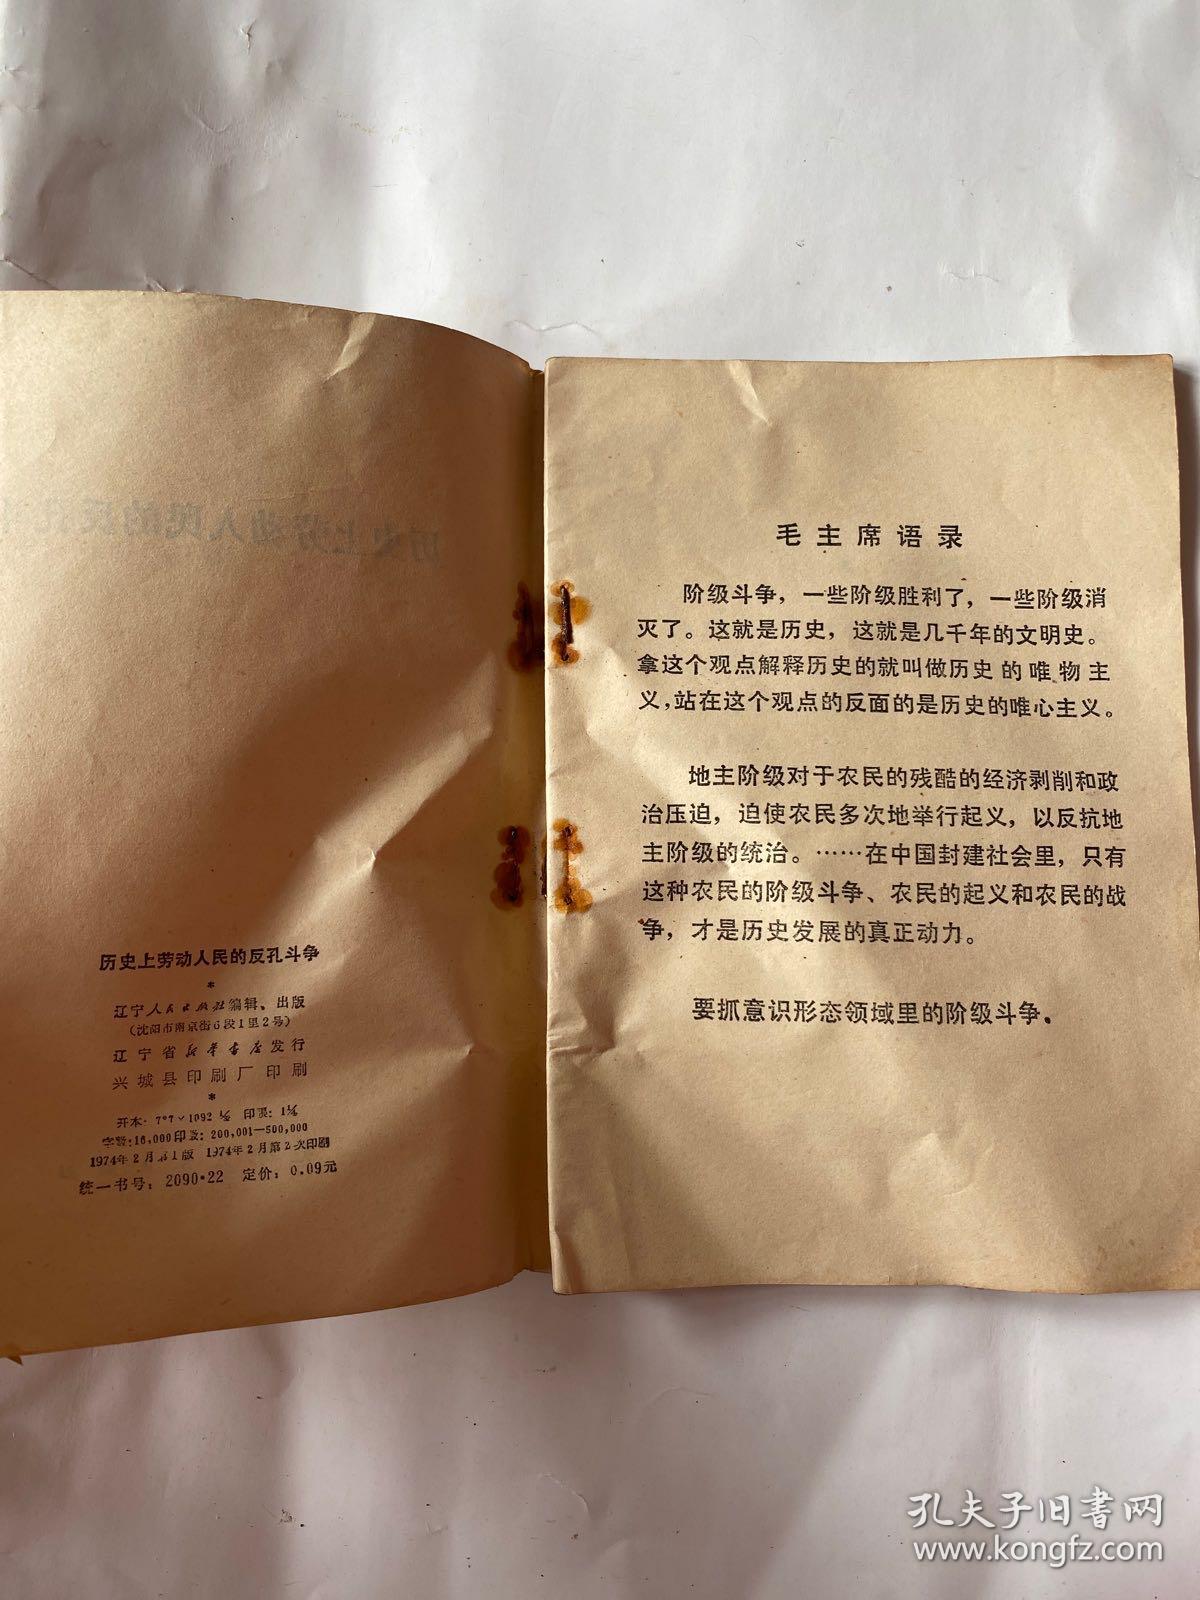 历史上劳动人民的反孔斗争
*
辽宁人民出版社编辑、出版
(沈阳市南京街6段1里2号)
辽宁省新华书店发行
兴城县印刷厂印刷
*
开本:787×1092 印张:
字数:16,000印数:200,001—500,000
1974年2月第1版 1974年2月第2次印刷
统一书号:2090·22 定价:0.09元
毛主席语录
阶级斗争,一些阶级胜利了,一些阶级消
灭了。这就是历史,这就是几千年的文明史。
拿这个观点解释历史的就叫做历史的唯物主
义,站在这个观点的反面的是历史的唯心主义。
地主阶级对于农民的残酷的经济剥削和政
治压迫,迫使农民多次地举行起义,以反抗地
主阶级的统治。……在中国封建社会里,只有
这种农民的阶级斗争、农民的起义和农民的战
争,才是历史发展的真正动力。
要抓意识形态领域里的阶级斗争。
孔夫子旧书网
www.kongfz.com